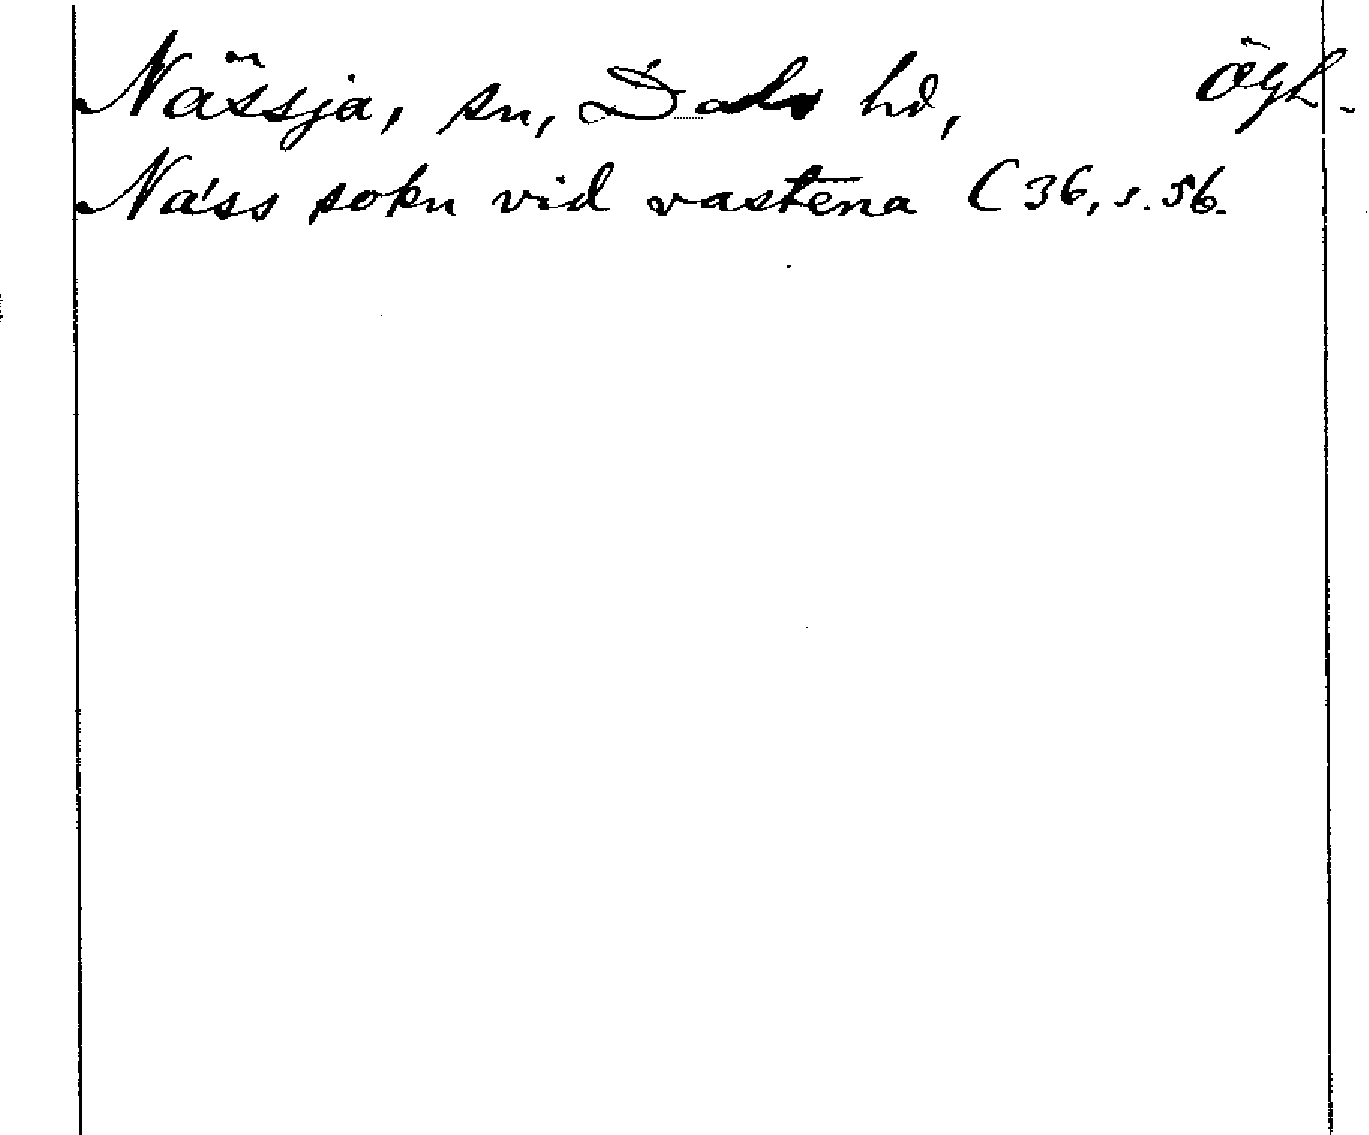 Nässja, sn, Dals hd, Ögl.
Näss sokn vid vastena C 36, s. 56.